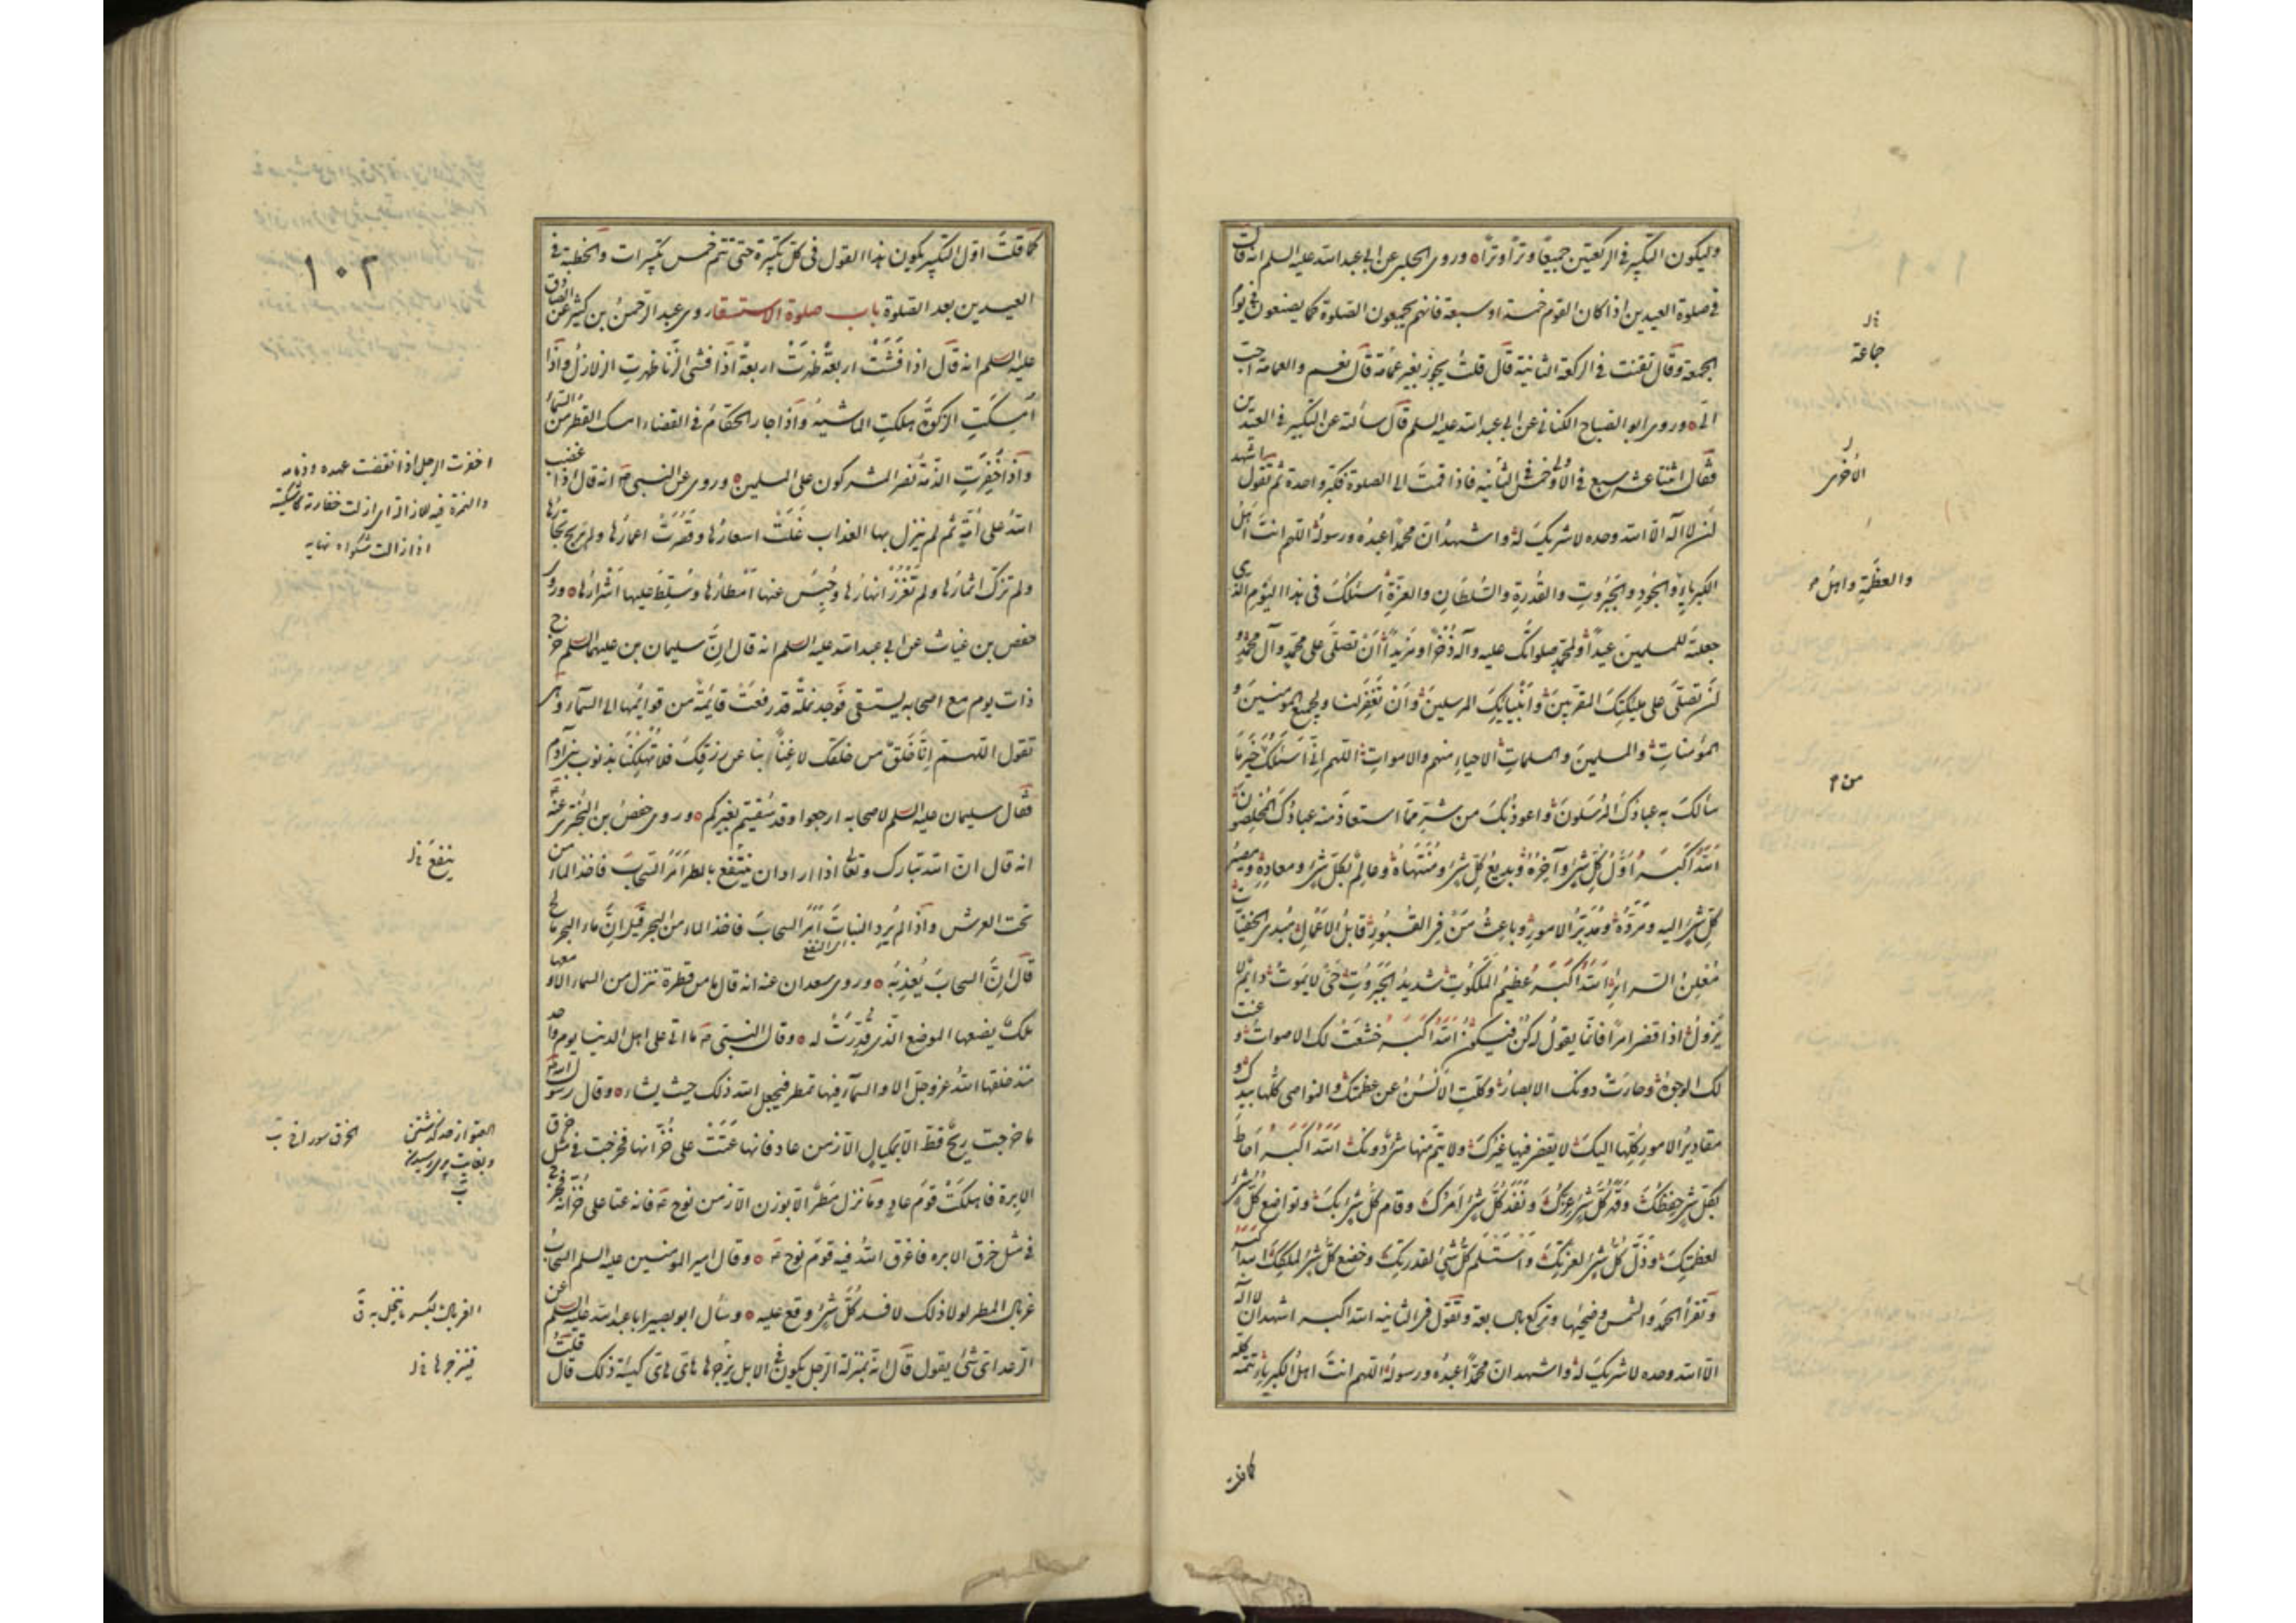 وليكون التكبير في الركعتين جميعا وترا وترا وروى الحلبي عن ابي عبد الله عليه السلم انه قال
في صلوة العيدين اذا كان القوم خمسة او سبعة فانهم يجمعون الصلوة كما يصنعون في يوم
الجمعة وقال تقنت في الركعة الثانية قال قلت يجوز بغير عمامة قال نعم والعمامة احب
الي وروى ابو الصباح الكناني عن ابي عبد الله عليه السلم قال سألته عن التكبير في العيدين
فقال اثنتا عشرة سبع في الاولى وخمس في الثانية فاذا قمت الى الصلوة فكبر واحدة ثم تقول اشهد
ان لا اله الا الله وحده لا شريك له واشهد ان محمدا عبده ورسوله اللهم انت اهل
الكبرياء والجود والجبروت والقدرة والسلطان والعزة اسئلك في هذا اليوم الذي
جعلته للمسلمين عيدا ولمحمد صلواتك عليه وآله ذخرا ومزيدا ان تصلي على محمد وآل محمد و
ان تصلي على ملئكتك المقربين وانبيائك المرسلين وان تغفر لنا ولجميع المؤمنين و
المؤمنات والمسلمين والمسلمات الاحياء منهم والاموات اللهم اني اسئلك خير ما
سألك به عبادك المرسلون واعوذ بك من شر ما استعاذ منه عبادك المخلصون
الله اكبر اول كل شيء وآخره وبديع كل شيء ومنتهاه وعالم بكل شيء ومعاده ومصير
كل شيء اليه ومرده ومدبر الامور وباعث من في القبور قابل الاعمال مبدي الخفيات
معلن السرائر الله اكبر عظيم الملكوت شديد الجبروت حي لا يموت دائم لا
يزول اذا قضى امرا فانما يقول له كن فيكون الله اكبر خشعت لك الاصوات وعنت
لك الوجوه وحارت دونك الابصار وكلت الالسن عن عظمتك والنواصي كلها بيدك و
مقادير الامور كلها اليك لا يقضي فيها غيرك ولا يتم منها شيء دونك الله اكبر احاط
بكل شيء حفظك وقهر كل شيء عزك ونفذ كل شيء امرك وقام كل شيء بك وتواضع كل شيء
لعظمتك وذل كل شيء لعزتك واستسلم كل شيء لقدرتك وخضع كل شيء لملكك الله اكبر
وتقرأ الحمد والشمس وضحيها وتركع بالسابعة وتقول في الثانية الله اكبر اشهد ان لا اله
الا الله وحده لا شريك له واشهد ان محمدا عبده ورسوله اللهم انت اهل الكبرياء تتمه كله
جماعة
الاخرى
والعظمة واهل
من
كما قلت
كما قلت اول التكبير يكون هذا القول في كل تكبيرة حتى تتم خمس تكبيرات والخطبة في
العيدين بعد الصلوة باب صلوة الاستسقاء روى عبد الرحمن بن كثير عن الصادق
عليه السلم انه قال اذا فشت اربعة ظهرت اربعة اذا فشى الزنا ظهرت الزلازل واذا
امسكت الزكوة هلكت الماشية واذا جار الحكام في القضاء امسك القطر من السماء
واذا خفرت الذمة نصر المشركون على المسلمين وروي عن النبي ص انه قال اذا غضب
الله على امة ثم لم ينزل بها العذاب غلت اسعارها وقصرت اعمارها ولم تربح تجارها
ولم تزك اثمارها ولم تغزر انهارها وحبس عنها امطارها وسلط عليها اشرارها وروى
حفص بن غياث عن ابي عبد الله عليه السلم انه قال ان سليمان بن عليهما السلم خرج
ذات يوم مع اصحابه يستسقي فوجد نملة قد رفعت قائمة من قوائمها الى السماء وهي
تقول اللهم انا خلق من خلقك لا غنا بنا عن رزقك فلا تهلكنا بذنوب بني آدم
فقال سليمان عليه السلم لاصحابه ارجعوا وقد سقيتم بغيركم وروى حفص بن البختري عنه ع
انه قال ان الله تبارك وتعالى اذا اراد ان ينتفع بالمطر امر السحاب فاخذ الماء من
تحت العرش واذا لم يرد النبات امر السحاب فاخذ الماء من البحر قيل ان ماء البحر مالح
قال ان السحاب يعذبه وروى سعدان عنه انه قال ما من قطرة تنزل من السماء الا ومعها
ملك يضعها الموضع الذي قدرت له وقال النبي ص ما اتى على اهل الدنيا يوم واحد
منذ خلقها الله عز وجل الا والسماء فيها تمطر فيجعل الله ذلك حيث يشاء وقال رسول الله ص
ما خرجت ريح قط الا بمكيال الا زمن عاد فانها عتت على خزانها فخرجت في مثل خرق
الابرة فاهلكت قوم عاد وما نزل مطر الا بوزن الا زمن نوح ع فانه عتا على خزانه فخرج
في مثل خرق الابره فاغرق الله فيه قوم نوح ع وقال امير المؤمنين عليه السلم السحاب
غربال المطر لولا ذلك لافسد كل شيء وقع عليه وسأل ابو بصير ابا عبد الله عليه السلم عن
الرعد اي شيء يقول قال انه بمنزلة الرجل يكون في الابل يزجرها هاي هاي كهيئة ذلك قال قلت
١٠٢
اخفرت الرجل اذا نقضت عهده وذمامه
والهمزة فيه للازالة اي ازلت خفارته كاشكيته
اذا ازالت شكواه نهايه
ينفع خ ل
العتو از حد گذشتن
الغربال بالكسر ما ينخل به ق
فيزجرها خ ل